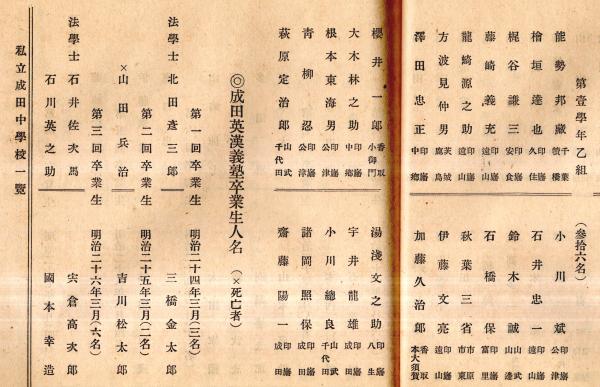 第壹學年乙組 (參拾六名)
能勢邦藏 千葉 小川斌 印旛公津
檜垣達也 印旛久住 石井忠一 印旛遠山
梶谷謙三 印旛安食 鈴木誠 山武山邊
藤崎義充 印旛遠山 石橋保 印旛富里
龍崎源之助 印旛遠山 秋葉三省 市原市東
方波見仲男 茨城鹿島 伊藤文亮 印旛遠山
澤田忠正 印旛中鄉 加藤久治郎 香取本大須賀
櫻井一郎 香取小御門 湯淺文之助 印旛八生
大木林之助 印旛中鄉 宇井龍雄 印旛成田
根本東海男 印旛公津 小川總良 山武千代田
青柳忍 印旛公津 諸岡照保 印旛成田
萩原定治郎 山武千代田 齋藤陽一 印旛成田
◎成田英漢義塾卒業生人名 (×死亡者)
第一回卒業生 明治二十四年三月(三名)
法學士 北田彥三郎 三橋金太郎
第二回卒業生 明治二十五年三月(二名)
×山田兵治 吉川松太郎
第三回卒業生 明治二十六年三月(六名)
法學士 石井佐次馬 宍倉高次郎
石川英之助 國本幸造
私立成田中學校一覽